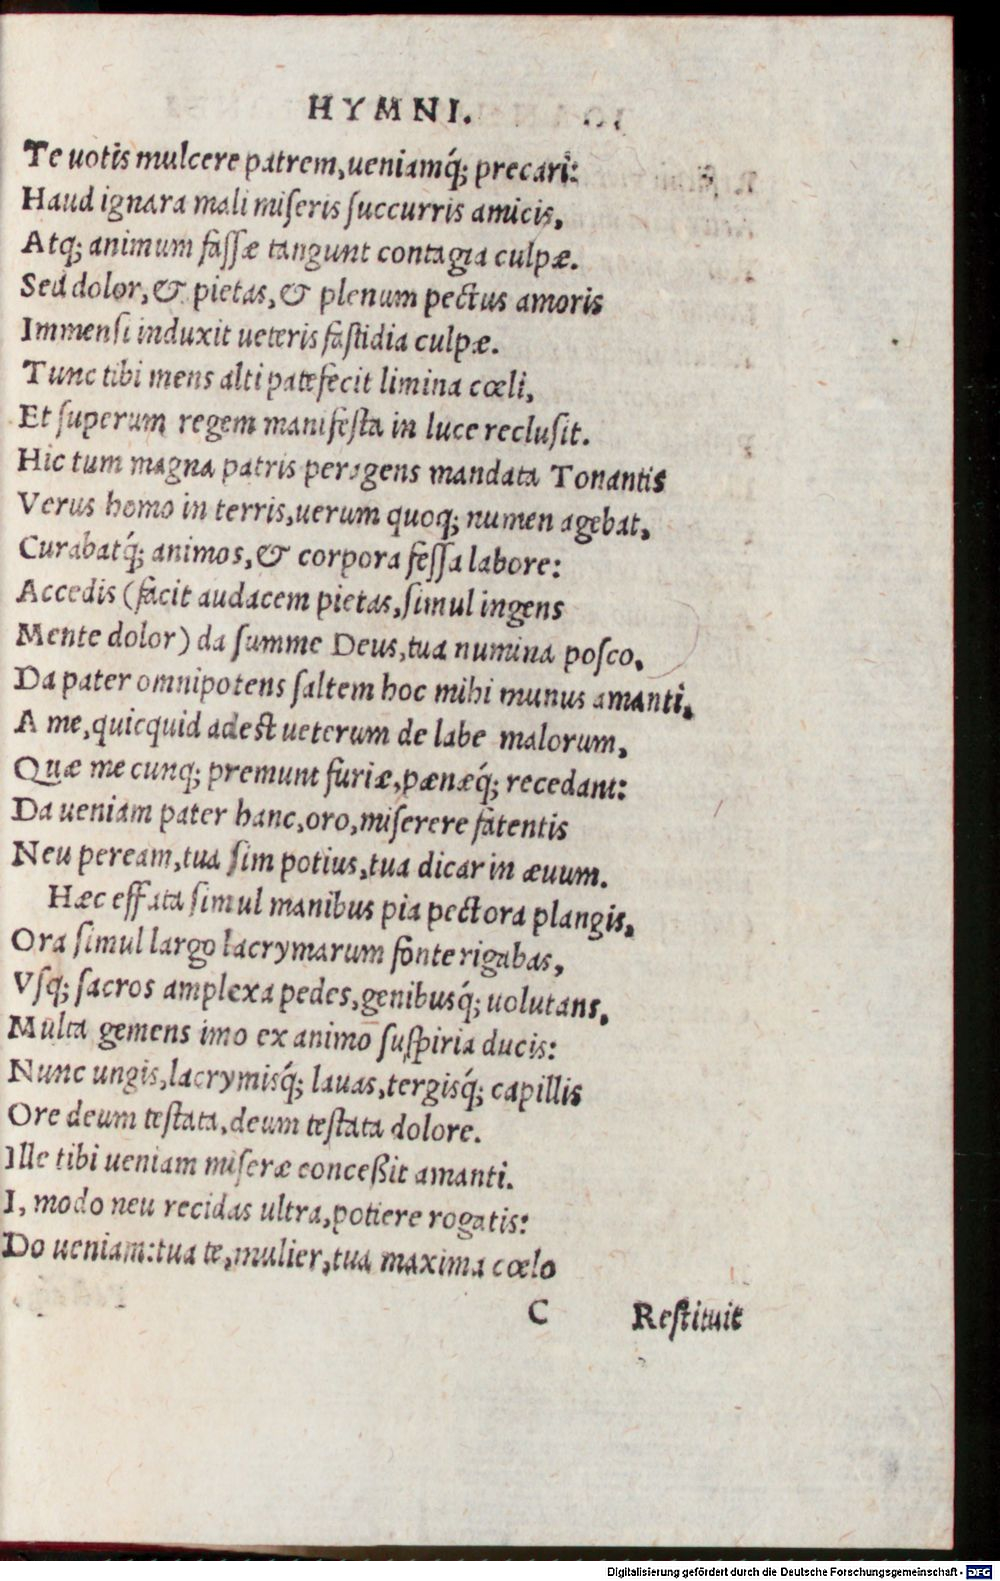 HYMNI.
Te uotis mulcere patrem, ueniamq́; precari:
Haud ignara mali miſeris ſuccurris amicis,
Atq; animum faſſæ tangunt contagia culpæ.
Sed dolor, & pietas, & plenum pectus amoris
Immenſi induxit ueteris faſtidia culpæ.
Tunc tibi mens alti patefecit limina cœli,
Et ſuperum regem manifeſta in luce recluſit.
Hic tum magna patris peragens mandata Tonantis
Verus homo in terris, uerum quoq; numen agebat,
Curabatq́; animos, & corpora feſſa labore:
Accedis (facit audacem pietas, ſimul ingens
Mente dolor) da ſumme Deus, tua numina poſco,
Da pater omnipotens ſaltem hoc mihi munus amanti,
A me, quicquid adest ueterum de labe malorum,
Quæ me cunq; premunt furiæ, pænæq́; recedant:
Da ueniam pater hanc, oro, miſerere fatentis
Neu peream, tua ſim potius, tua dicar in æuum.
Hæc effata simul manibus pia pectora plangis,
Ora ſimul largo lacrymarum fonte rigabas,
Vſq; ſacros amplexa pedes, genibusq́; uolutans,
Multa gemens imo ex animo ſuſpiria ducis:
Nunc ungis, lacrymisq́; lauas, tergisq́; capillis
Ore deum teſtata, deum teſtata dolore.
Ille tibi ueniam miſeræ conceßit amanti.
I, modo neu recidas ultra, potiere rogatis:
Do ueniam: tua te, mulier, tua maxima cœlo
C Reſtituit
Digitalisierung gefördert durch die Deutsche Forschungsgemeinschaft - DFG